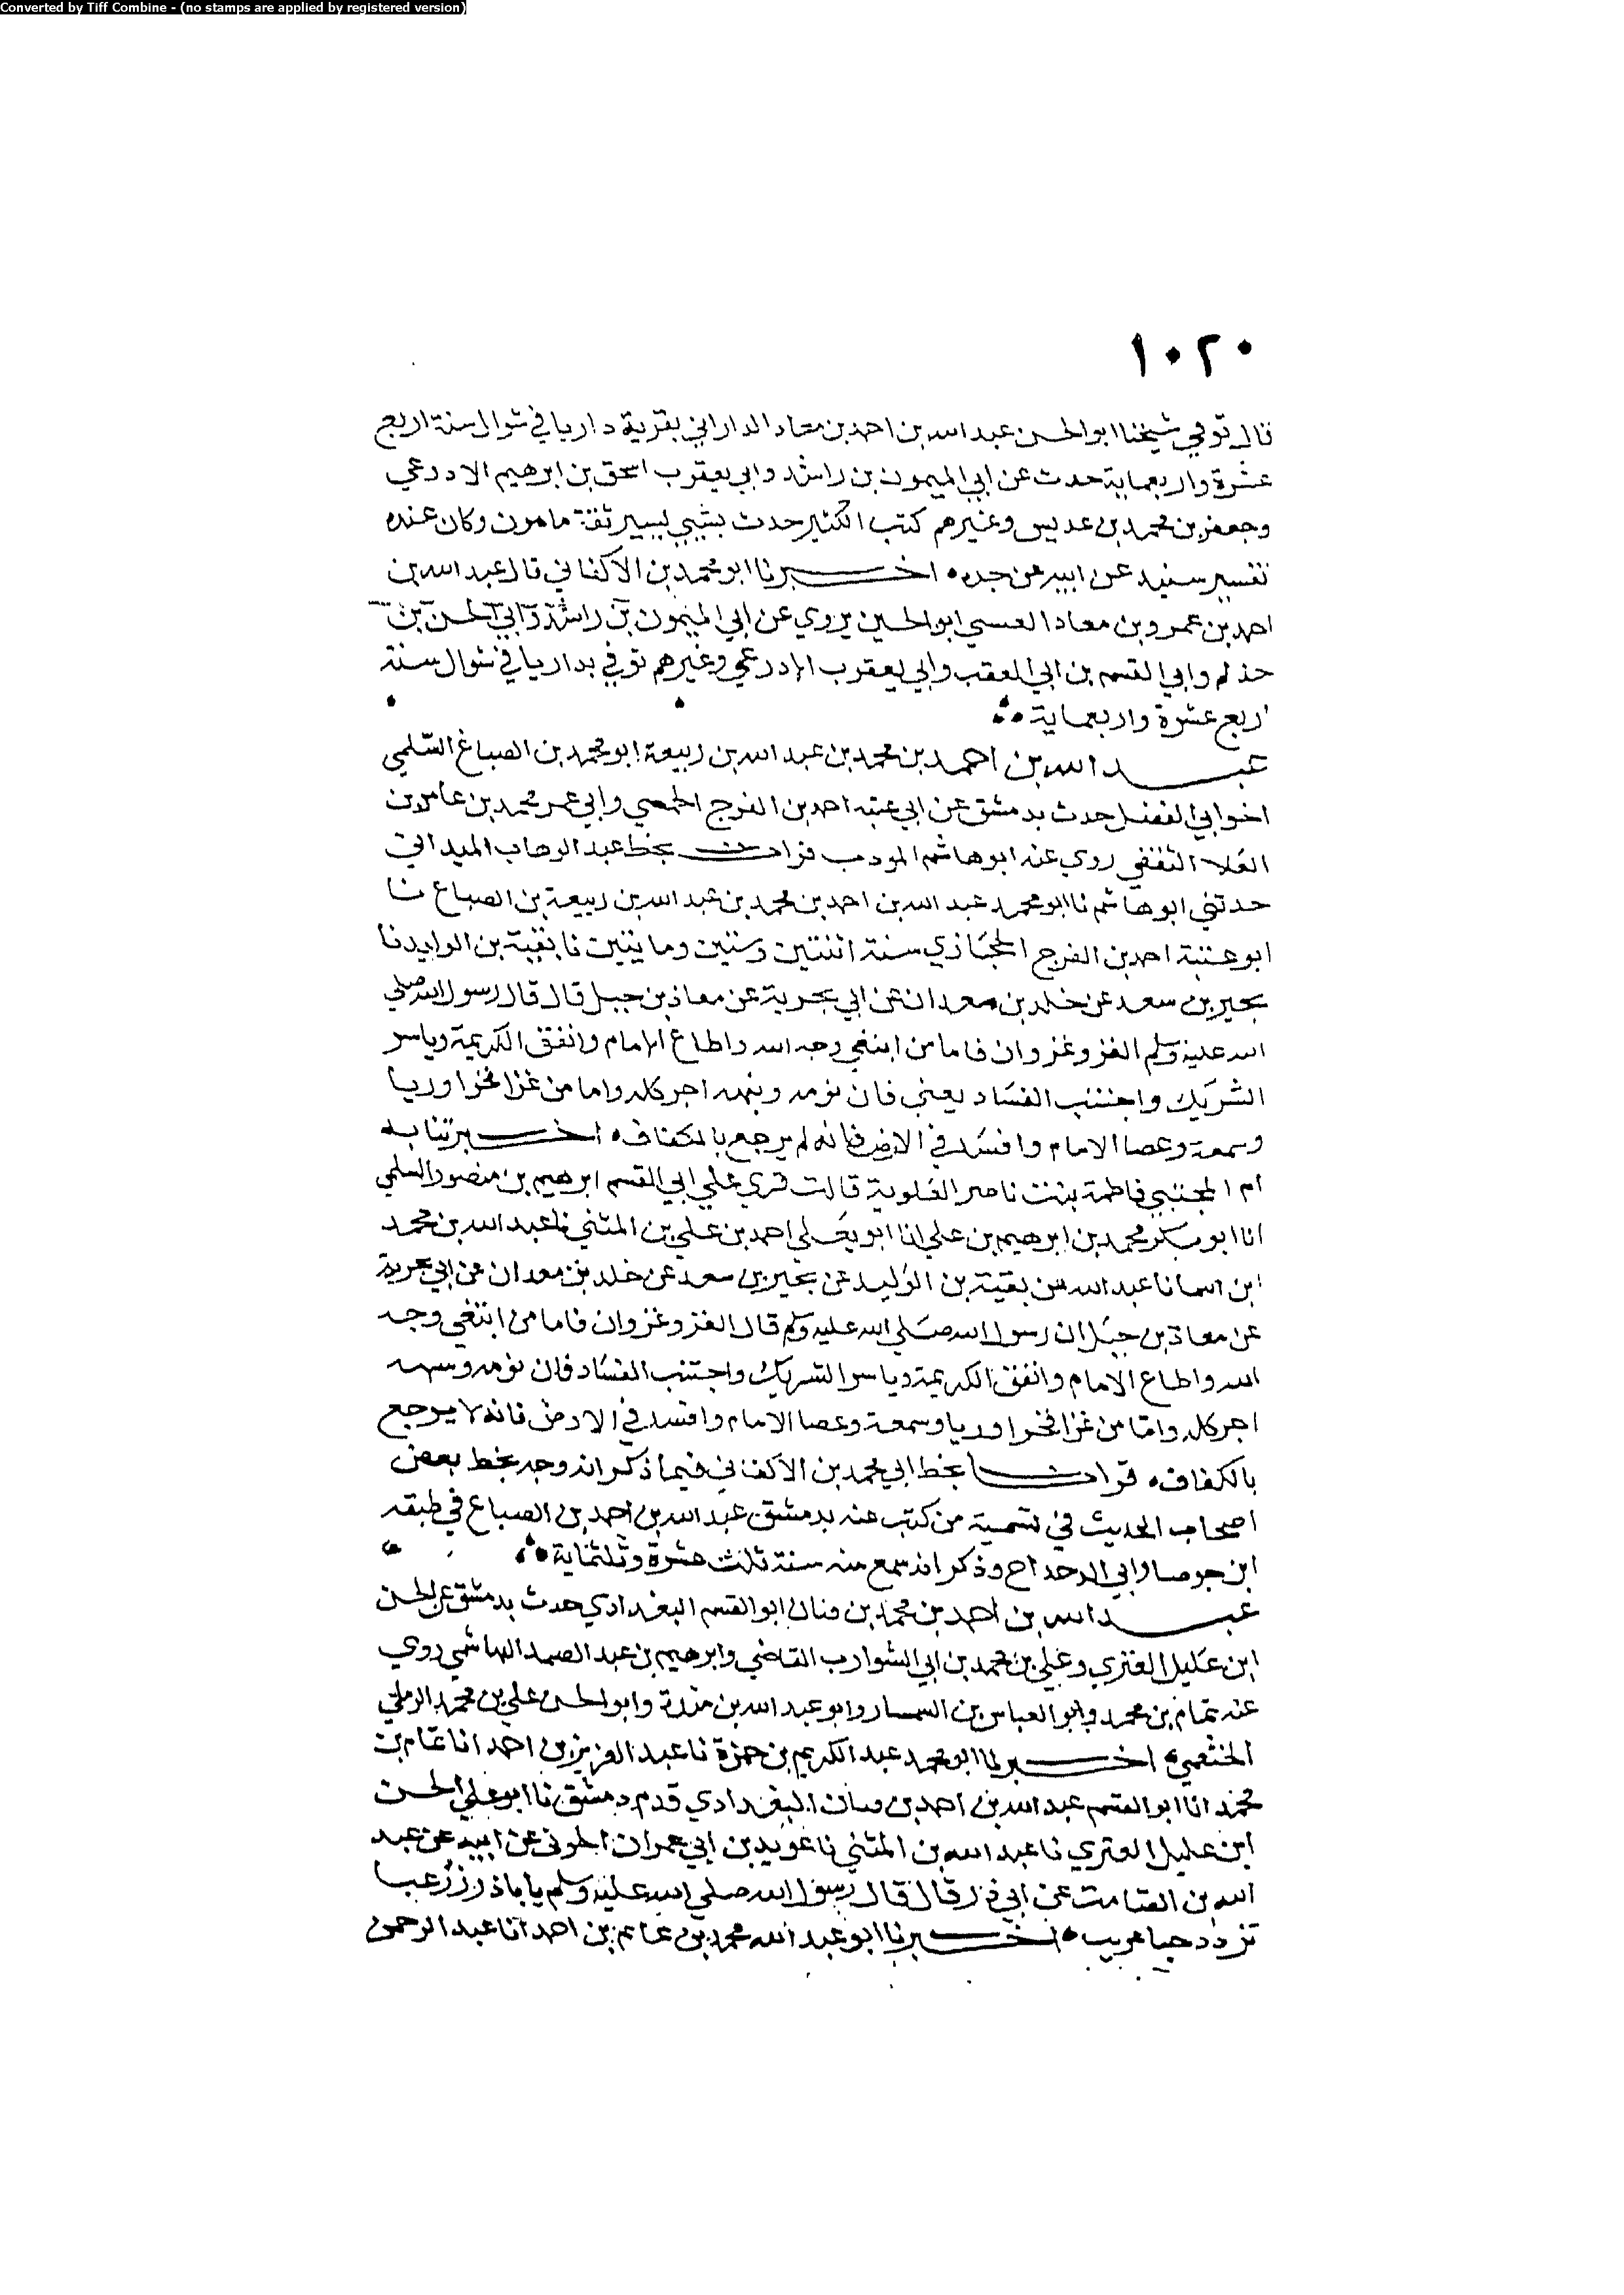 Converted by Tiff Combine - (no stamps are applied by registered version)
١٠٢٠
قال توفي شيخنا ابو الحسن عبد الله بن احمد بن معاد الداراني بقرية داريا في شوال سنة اربع
عشرة واربعماية حدث عن ابي الميمون بن راشد وابي يعقوب اسحق بن ابرهيم الادرعي
وجعفر بن محمد بن عديس وغيرهم كتب الكثير حدث بشيي يسير ثقة مامون وكان عنده
تفسير سنيد عن ابيه عن جده اخبرنا ابو محمد بن الاكفاني قال عبد الله بن
احمد بن عمرو بن معاد العبسي ابو الحسين يروي عن ابي الميمون بن راشد وابي الحسن بن
حذلم وابي القسم بن ابي العقب وابي يعقوب الادرعي وغيرهم توفي بداريا في شوال سنة
اربع عشرة واربعماية
عبد الله بن احمد بن محمد بن عبد الله بن ربيعة ابو محمد بن الصباغ السلمي
اخو ابي الفضل حدث بدمشق عن ابي عتبه احمد بن الفرج الحمصي وابي عمر محمد بن عامر بن
العلا الثقفي روي عنه ابو هاشم المودب قرات بخط عبد الوهاب الميداني
حدثني ابو هاشم نا ابو محمد عبد الله بن احمد بن محمد بن عبد الله بن ربيعة بن الصباع نا
ابو عتبة احمد بن الفرج الحجازي سنة اثنتين وستين ومايتين نا بقية بن الوليد نا
بحير بن سعد عن خلد بن معدان عن ابي بحرية عن معاذ بن جبل قال قال رسول الله صلى
الله عليه وسلم الغزو غزوان فاما من ابتغي وجه الله واطاع الامام وانفق الكريمة وياسر
الشريك واجتنب الفساد يعني فان نومه ونبهه اجر كله واما من غزا فخرا وريا
وسمعة وعصا الامام وافسد في الارض فانه لم يرجع بالكفاف اخبرتنا به
ام المجتبي فاطمة بنت ناصر العلوية قالت قري علي ابي القسم ابرهيم بن منصور السلمي
انا ابو بكر محمد بن ابرهيم بن علي انا ابو يعلي احمد بن علي بن المثني نا عبد الله بن محمد
ابن اسما نا عبد الله عن بقية بن الوليد عن بحير بن سعد عن خلد بن معدان عن ابي بحرية
عن معاذ بن جبل ان رسول الله صلي الله عليه وسلم قال الغزو غزوان فاما من ابتغي وجه
الله واطاع الامام وانفق الكريمة وياسر الشريك واجتنب الفساد فان نومه وسهه
اجر كله واما من غزا فخرا وريا وسمعة وعصا الامام وافسد في الارض فانه لا يرجع
بالكفاف قرات بخط ابي محمد بن الاكفاني فيما ذكر انه وجد بخط بعض
اصحاب الحديث في تسمية من كتب عنه بدمشق عبد الله بن احمد بن الصباع في طبقه
ابن جوصا وابي الدحداح وذكر انه سمع منه سنة ثلث عشرة وثلثماية
عبد الله بن احمد بن محمد بن ابو القسم البغدادي حدث بدمشق عن الحسن
ابن عليل العنزي وعلي بن محمد بن ابي الشوارب القاضي وابرهيم بن عبد الصمد الهاشمي روي
عنه تمام بن محمد وابو العباس بن السمسار وابو عبد الله بن مندة وابو الحسن علي بن محمد الرملي
الخثعمي اخبرنا ابو محمد عبد الكريم بن حمزة نا عبد العزيز بن احمد انا تمام بن
محمد انا ابو القسم عبد الله بن احمد بن البغدادي قدم دمشق نا ابو علي الحسن
ابن عليل العتري نا عبد الله بن المثني نا عويد بن ابي عمران الجوني عن ابيه عن عبد
الله بن الصامت عن ابي ذر قال قال رسول الله صلي الله عليه وسلم يا باذر زر غبا
تزدد حبا غريب اخبرنا ابو عبد الله محمد بن غانم بن احمد انا عبد الرحمن